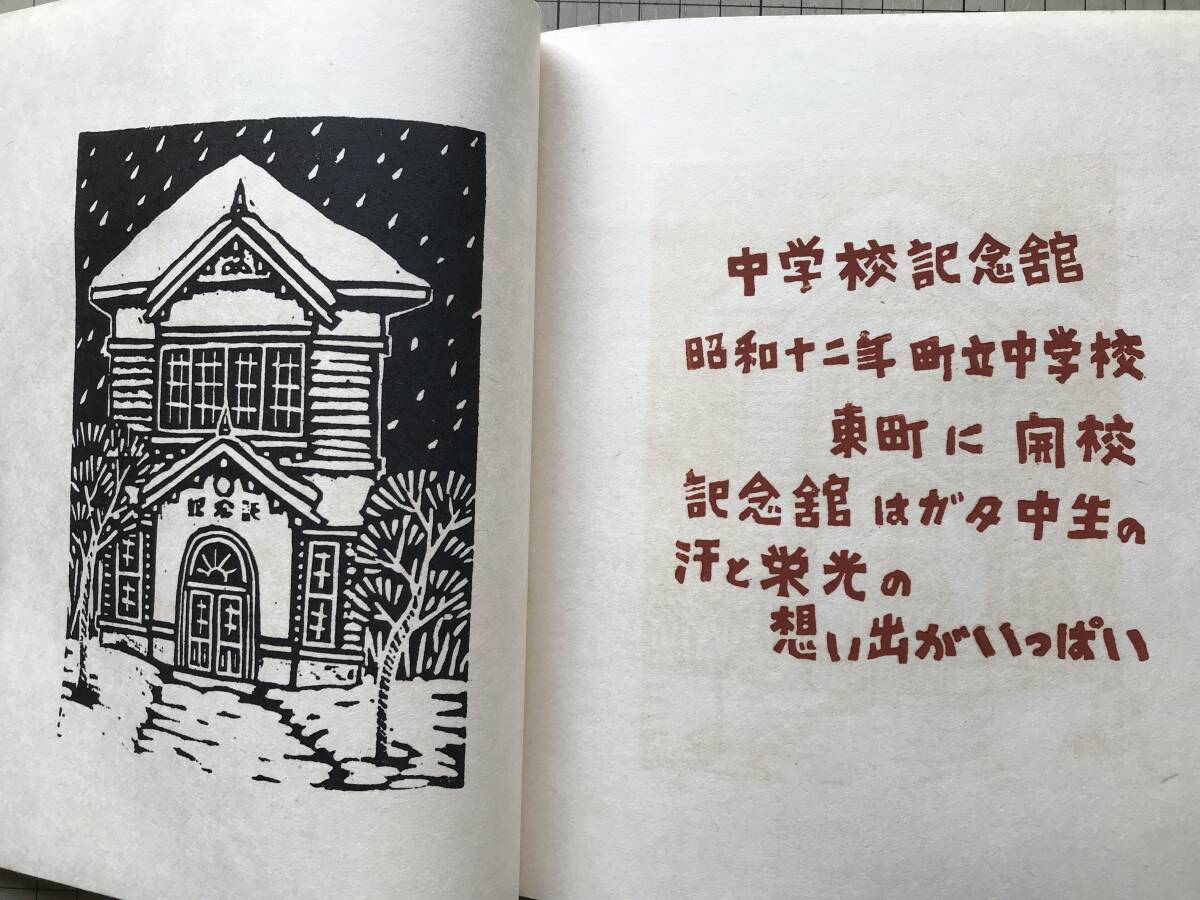 記念
中学校記念舘
昭和十二年 町立中学校
東町に 開校
記念舘はガタ中生の
汗と栄光の
想い出がいっぱい